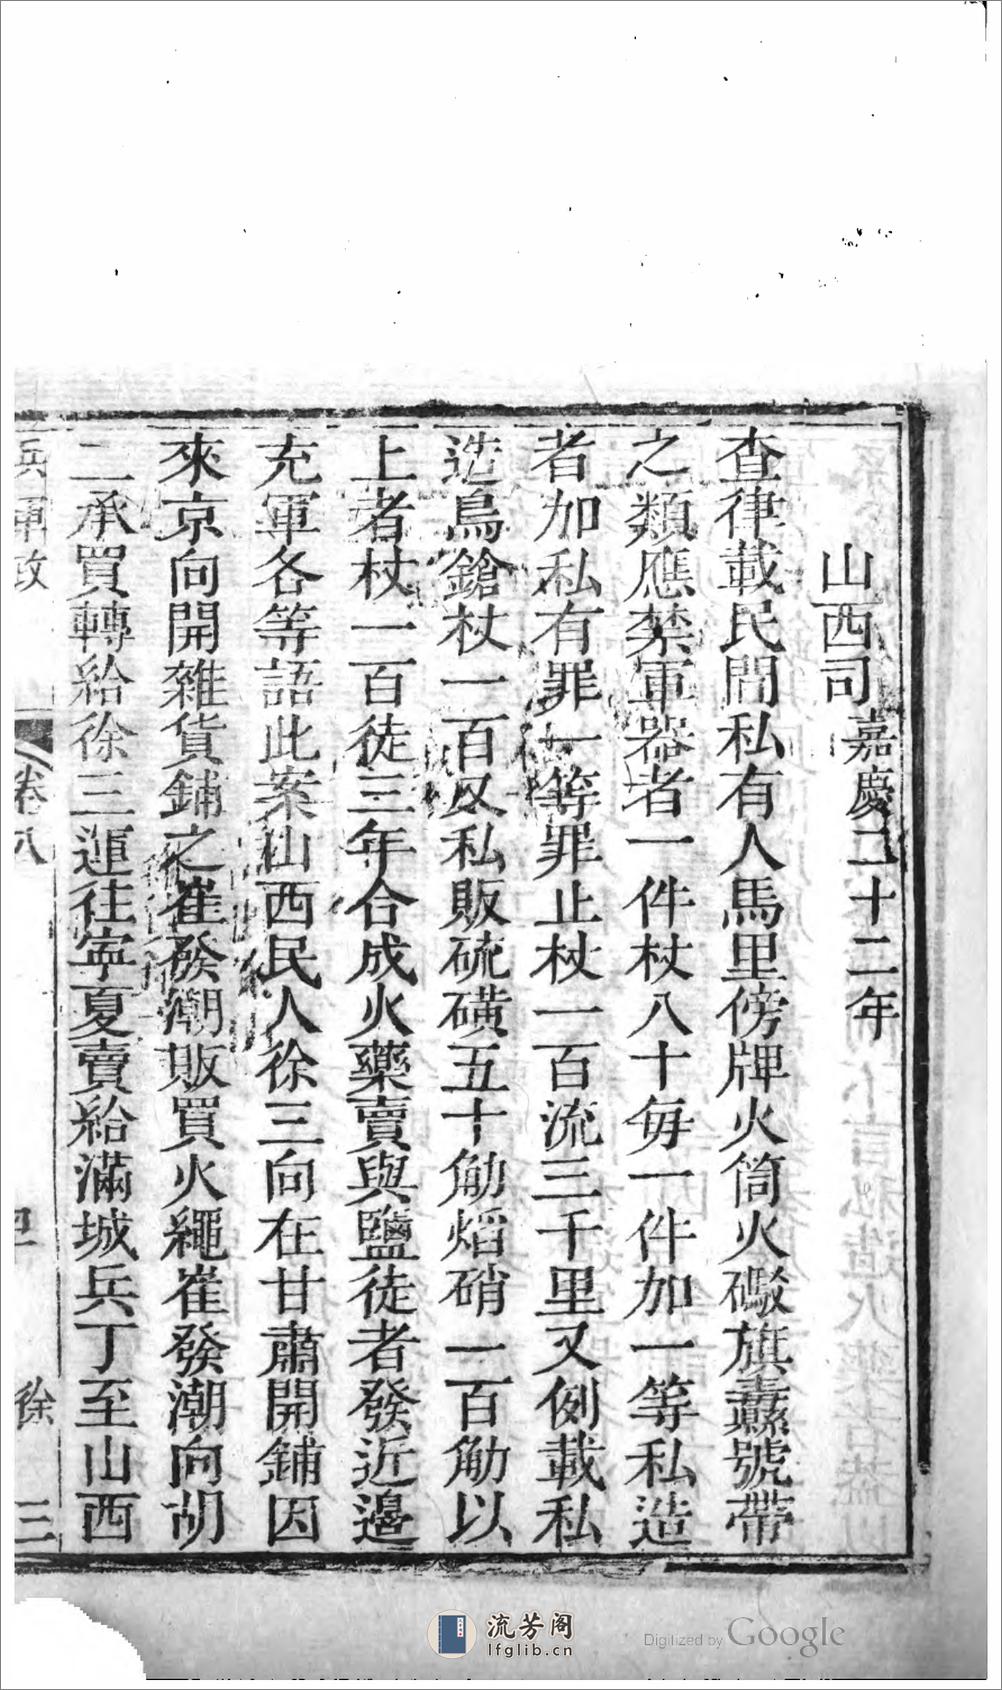 山西司嘉慶二十二年
查律載民間私有人馬甲傍牌火筒火礮旗纛號帶
之類應禁軍器者一件杖八十每一件加一等私造
者加私有罪一等罪止杖一百流三千里又例載私
造鳥鎗杖一百又私販硫磺五十觔焰硝一百觔以
上者杖一百徒三年合成火藥賣與鹽徒者發近邊
充軍各等語此案山西民人徐三向在甘肅開鋪因
來京向開雜貨鋪之崔發潮販買火繩崔發潮向胡
二承買轉給徐三運往寧夏賣給滿城兵丁至山西
兵 軍政
卷八
徐
三
流芳阁
lfglib.cn
Digitized by Google